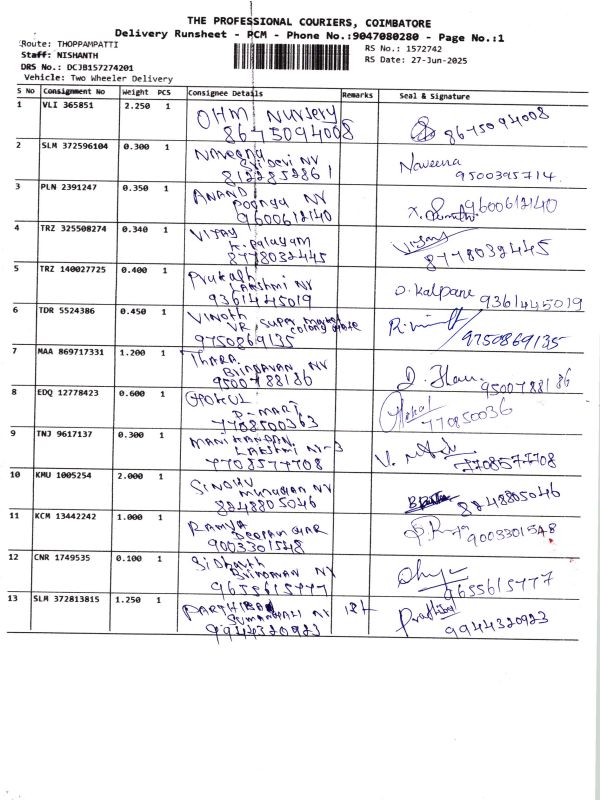 THE PROFESSIONAL COURIERS, COIMBATORE
Delivery Runsheet - PCM - Phone No.:9047080280 - Page No.:1
Route: THOPPAMPATTI
RS No.: 1572742
Staff: NISHANTH
RS Date: 27-Jun-2025
DRS No.: DCJB157274201
Vehicle: Two Wheeler Delivery
S No Consignment No Weight PCS Consignee Details Remarks Seal & Signature
1 VLI 365851 2.250 1 OHM Nursery
8675094008 8675094008
2 SLM 372596104 0.300 1 Naveena Naveena
Sri Devi NV
8122852861 9500395714
3 PLN 2391247 0.350 1 ANAND
Poonga NV
9600612140 9600612140
4 TRZ 325508274 0.340 1 VIJAY Vijay
K. Palayam
8778032445 8778032445
5 TRZ 140027725 0.400 1 Prakash D. Kalpana
Lakshmi NV
9361445019 9361445019
6 TDR 5524386 0.450 1 Vinoth
VR Super market
colony
9750869135 9750869135
7 MAA 869717331 1.200 1 THARA
Brindavan NV
9500788186 9500788186
8 EDQ 12778423 0.600 1 GOKUL Gokul
D-MART
7708500363 770850036
9 TNJ 9617137 0.300 1 MANIKANDAN
Lakshmi N-3
7708577708 7708577708
10 KMU 1005254 2.000 1 SINDHU
Murugan NV
8248805046 8248805046
11 KCM 13442242 1.000 1 RAMYA
9003301548 9003301548
12 CNR 1749535 0.100 1 Sidharth
Brindavan NV
9655615777 9655615777
13 SLM 372813815 1.250 1 PARTHIBAN
NV
9944320923 9944320923